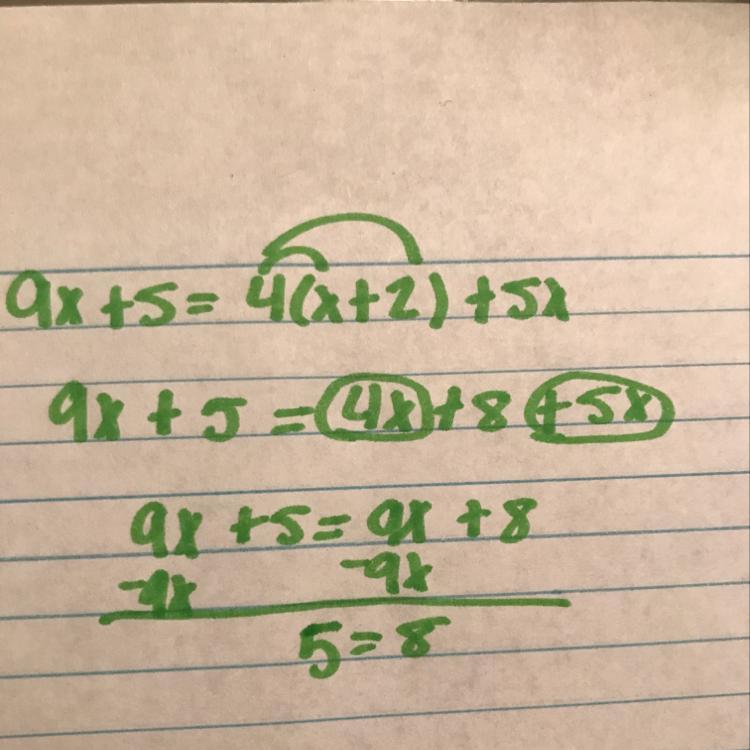 9x+5= 4(x+2)+5x
9x + 5 = 4x +8 +5x
9x +5= 9x +8
-9x -9x
5=8